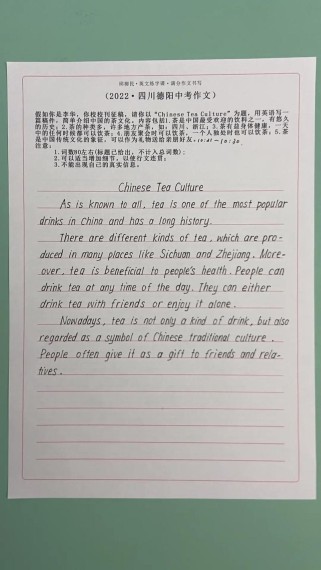 (2022·四川德阳中考作文)
假如你是李华,你校校刊征稿,请你以"Chinese Tea Culture"为题,用英语写一
篇稿件,简单介绍中国的茶文化。内容包括1.茶是中国最受欢迎的饮料之一,有悠久
的历史;2.茶的种类多,许多地方产茶,如:四川、浙江;3.茶有益身体健康,一天
中的任何时候都可以饮茶;4.朋友聚会时可以饮茶,一个人独处时也可以饮茶;5.茶
是中国传统文化的象征,可以作为礼物送给亲朋好友。
注意:
1.词数90左右(标题已给出,不计入总词数);
2.可以适当增加细节,以使行文连贯;
3.不能出现自己的真实信息。
Chinese Tea Culture
As is known to all, tea is one of the most popular
drinks in China and has a long history.
There are different kinds of tea, which are pro-
duced in many places like Sichuan and Zhejiang. More-
over, tea is beneficial to people's health. People can
drink tea at any time of the day. They can either
drink tea with friends or enjoy it alone.
Nowadays, tea is not only a kind of drink, but also
regarded as a symbol of Chinese traditional culture.
People often give it as a gift to friends and rela-
tives.